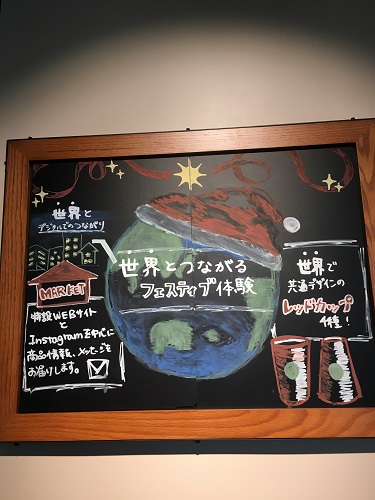 世界と
デジタルでのつながり
MARKET
特設WEBサイト
と
Instagramを中心に
商品情報、メッセージを
お届けします。
世界とつながる
フェスティブ体験
世界で
共通デザインの
レッドカップ
4種!